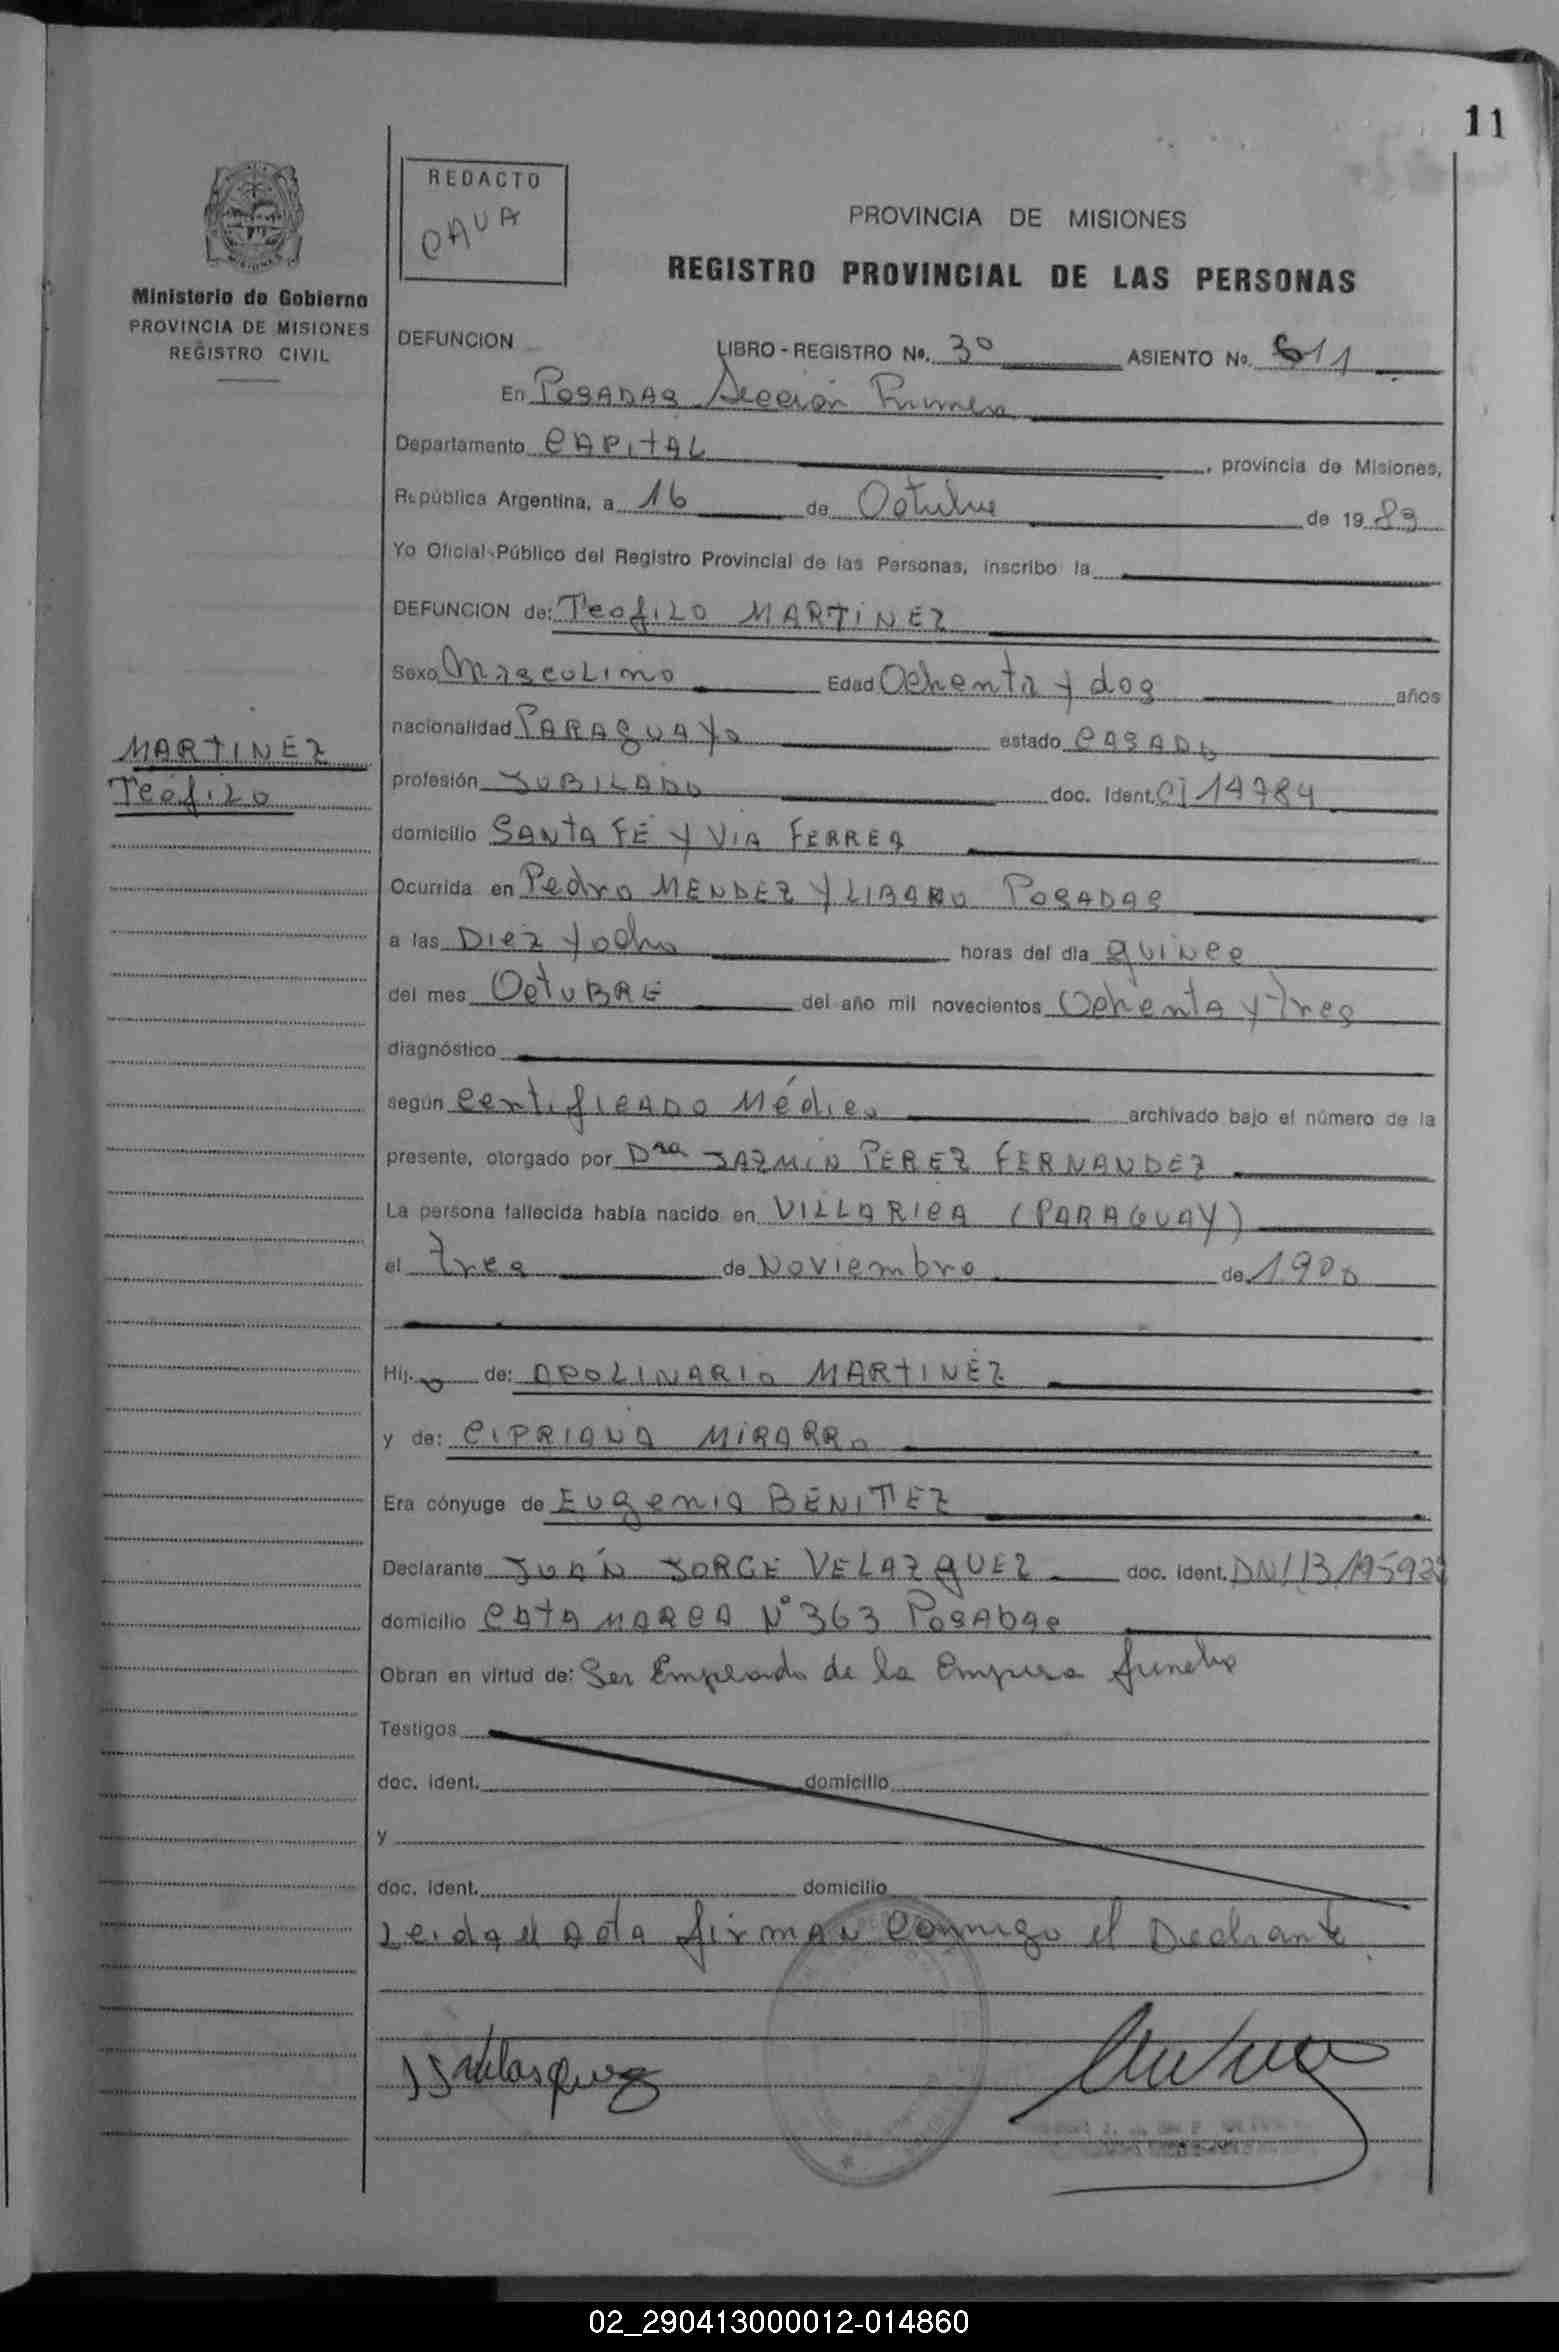 11
REDACTO
CAVA
Ministerio de Gobierno
PROVINCIA DE MISIONES
REGISTRO CIVIL
PROVINCIA DE MISIONES
REGISTRO PROVINCIAL DE LAS PERSONAS
DEFUNCION LIBRO - REGISTRO No. 3º ASIENTO No. 611
En POSADAS Sección Primera
Departamento CAPITAL, provincia de Misiones,
República Argentina, a 16 de Octubre de 19 83
Yo Oficial Público del Registro Provincial de las Personas, inscribo la
DEFUNCION de: Teofilo MARTINEZ
Sexo Masculino Edad Ochenta y dos años
nacionalidad PARAGUAYO estado CASADO
MARTINEZ
Teofilo
profesión JUBILADO doc. Ident. CI 14784
domicilio SANTA FE Y VIA FERREA
Ocurrida en Pedro MENDEZ Y LIBANO POSADAS
a las Diez y ocho horas del día quince
del mes OCTUBRE del año mil novecientos Ochenta y Tres
diagnóstico
según Certificado Médico archivado bajo el número de la
presente, otorgado por Dra JAZMIN PEREZ FERNANDEZ
La persona fallecida había nacido en VILLARICA (PARAGUAY)
el tres de Noviembre de 1900
Hij. o de: APOLINARIO MARTINEZ
y de: CIPRIANA
Era cónyuge de Eugenia BENITEZ
Declarante JUAN JORGE VELAZQUEZ doc. Ident. DNI
domicilio CATAMARCA Nº 363 POSADAS
Obran en virtud de: Ser Empleado de la Empresa funebre
Testigos
doc. ident. domicilio
y
doc. ident. domicilio
Leida el Acta firman conmigo el Declarante
02_290413000012-014860